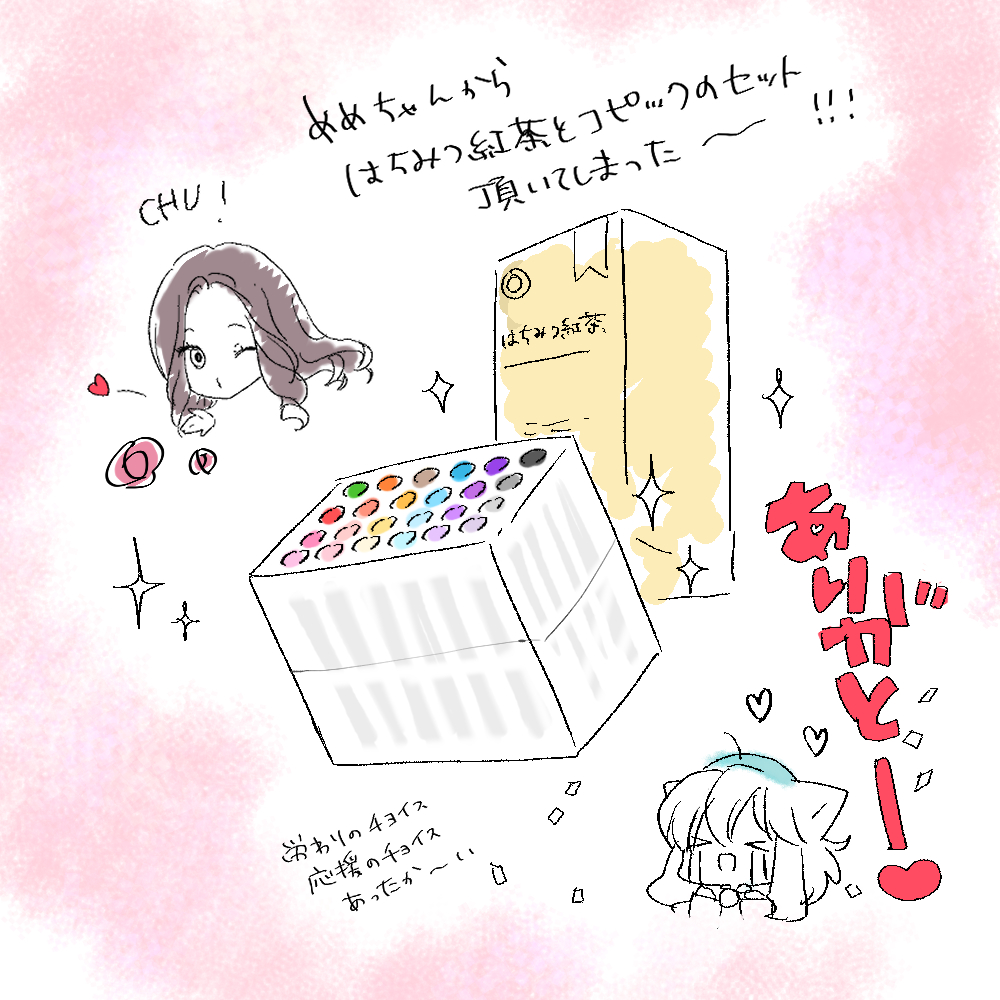 めめちゃんから
はちみつ紅茶とコピックのセット
頂いてしまった〜!!!
CHU!
はちみつ紅茶
ありがとー
労わりのチョイス
応援のチョイス
あったか〜い